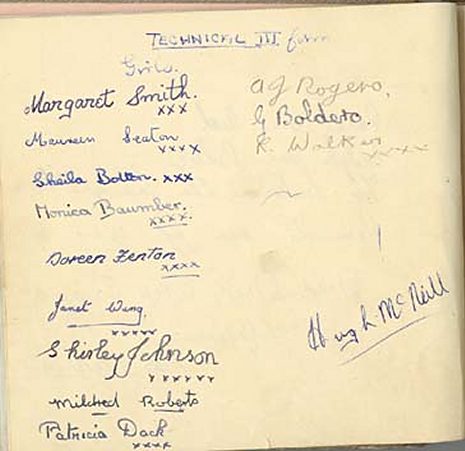 TECHNICAL III form
Girls.
Margaret Smith.
xxx
Maureen Seaton
xxxx
Sheila Bolton. xxx
Monica Baumber.
xxxx.
Doreen Fenton
xxxx
Janet Wang.
xxxxx
Shirley Johnson
xxxxxx
Mildred Roberts
Patricia Dack
xxxx
A J Rogers.
G Boldero.
R. Walker
xxxx
Hugh McNeill